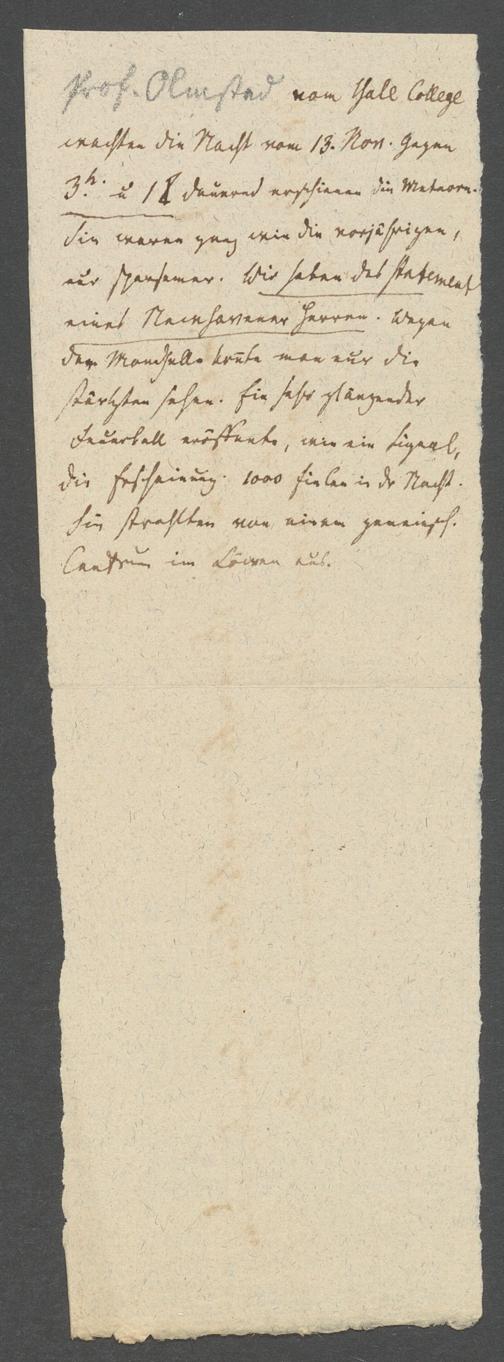 Prof. Olmsted vom Yale College
wachten die Nacht vom 13. Nov. Gegen
3h. u 1 dauernd erschienen die Meteore.
Sie waren ganz wie die vorjährigen,
nur sparsamer. Wir haben das Statement
eines Newhavener Herren. Wegen
der Mondhelle konte man nur die
stärksten sehen. Ein sehr glänzender
Feuerball eröffnete, wie ein Signal,
die Erscheinung. 1000 fielen in dr Nacht.
Sie strahlten von einem gemeinsch.
Centrum im Löwen aus.